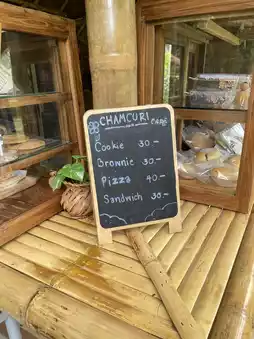 CHAMCURI
Café
Cookie 30.-
Brownie 30.-
Pizza 40.-
Sandwich 30.-